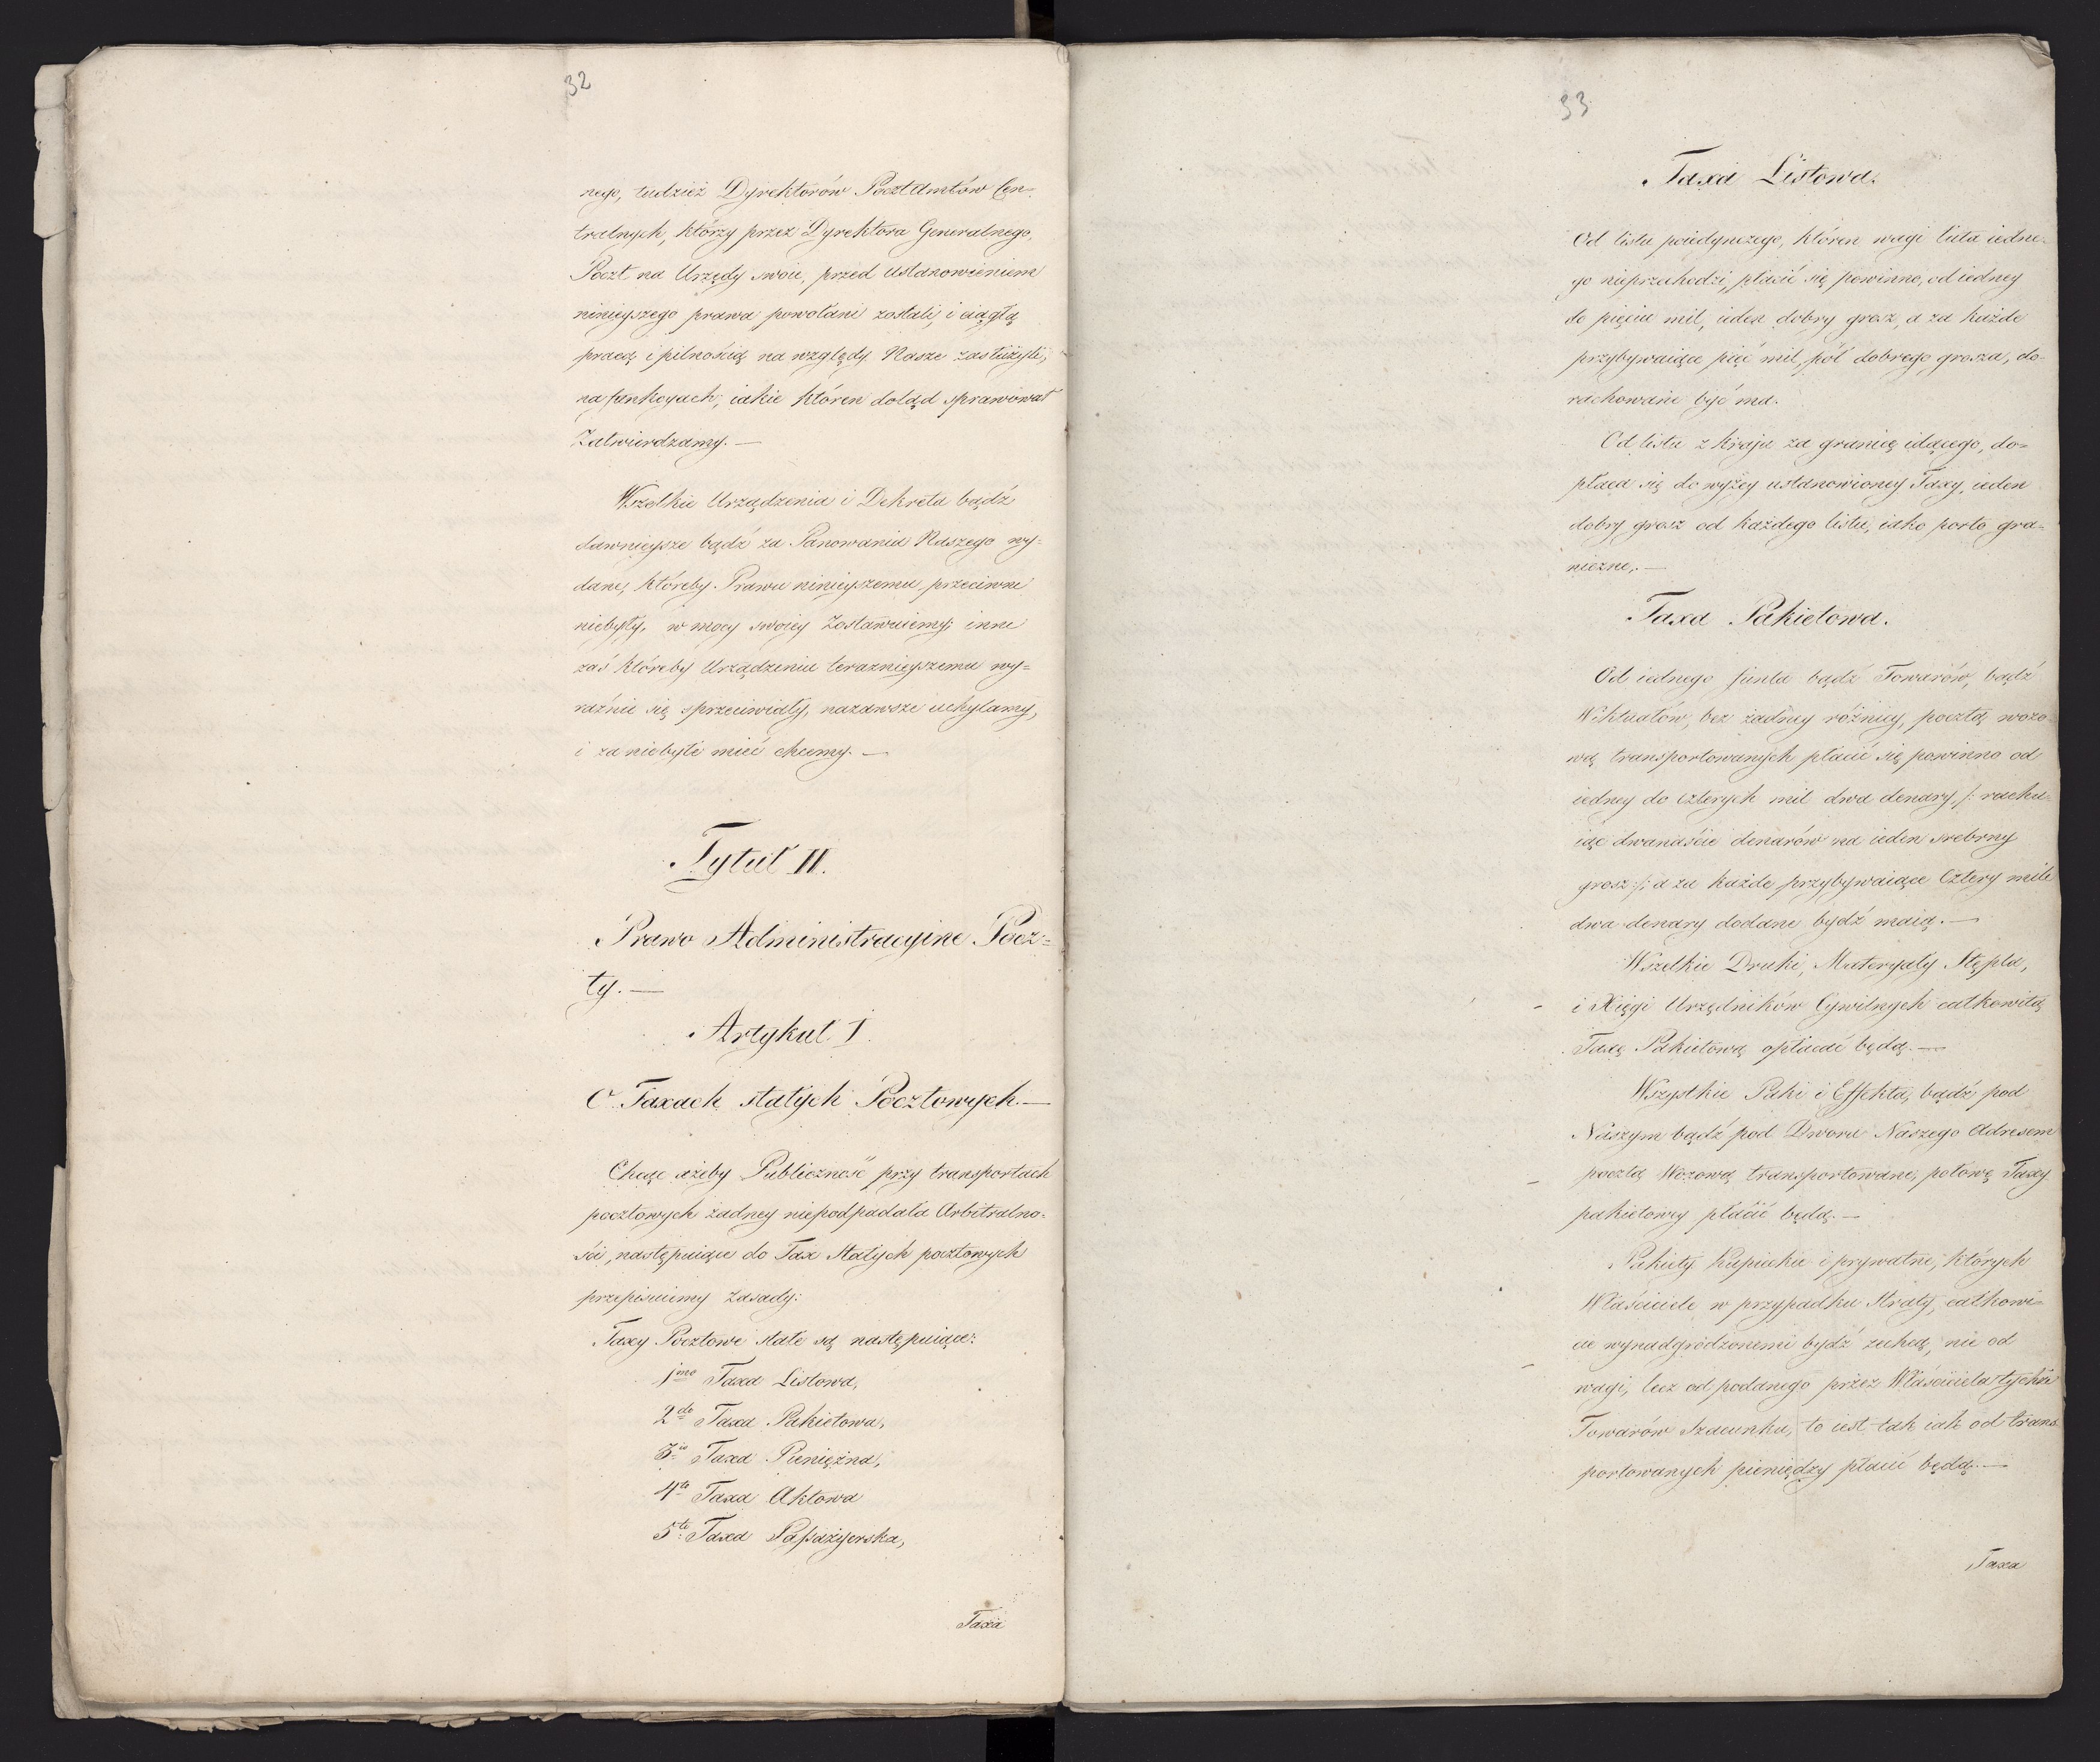 32
nego, tudzież Dyrektorów Pocztamtów Cen-
tralnych, którzy przez Dyrektora Generalnego,
Poczt na Urzędy swoie, przed ustanowieniem
ninieyszego prawa powołani zostali, i ciągłą
pracą i pilnością na względy Nasze zasłużyli,
na funkcyach, iakie któren dotąd sprawował
Zatwierdzamy. —
Wszelkie Urządzenia i Dekreta bądź
dawnieysze bądź za Panowania Naszego wy=
dane, któreby Prawu ninieyszemu przeciwne
niebyły, w mocy swoiey Zostawuiemy; inne
zaś któreby Urządzeniu teraznieyszemu wy=
raźnie się sprzeciwiały, nazawsze uchylamy,
i za niebyłe mieć chcemy. —
Tytuł II.
Prawo Administracyine Pocz=
ty. —
Artykuł I.
O Taxach stałych Pocztowych. —
Chcąc ażeby Publiczność przy transportach
pocztowych żadney niepodpadała Arbitralno=
ści, następuiące do Tax Stałych pocztowych
przepisuiemy Zasady:
Taxy Pocztowe stałe są następuiące:
1mo Taxa Listowa,
2do Taxa Pakietowa,
3io Taxa Pieniężna,
4to Taxa Aktowa
5to Taxa Passażyerska,
Taxa
33
Taxa Listowa.
Od listu poiedynczego, któren wagi łuta iedne-
go nieprzechodzi, płacić się powinno, od iedney
do pięciu mil, ieden dobry grosz, a za każde
przybywaiące pięć mil, pół dobrego grosza, do-
rachowane być ma.
Od listu z kraju za granicę idącego, do=
płaca się do wyżey ustanowioney Taxy, ieden
dobry grosz od każdego listu, iako porto gra=
niczne. —
Taxa Pakietowa.
Od iednego funta bądź Towarów, bądź
Wiktuałów, bez żadney różnicy, pocztą wozo
wą transportowanych płacić się powinno od
iedney do czterych mil dwa denary, /: rachu=
iąc dwanaście denarów na ieden srebrny
grosz :/ a za każde przybywaiące Cztery mile
dwa denary dodane bydź maią. —
Wszelkie Druki, Materyały Stępla,
i Xięgi Urzędników Cywilnych całkowitą
Taxę Pakietową opłacać będą. —
Wszystkie Paki i Effekta, bądź pod
Naszym bądź pod Dworu Naszego Adresem
pocztą Wozową transportowane, połowę Taxy
pakietowey płacić będą. —
Pakiety Kupieckie i prywatne, których
Właściciele w przypadku Straty, całkowi=
cie wynadgrodzonemi bydź zechcą, nie od
wagi, lecz od podanego przez Właściciela tychże
Towarów Szacunku, to iest tak iak od trans
portowanych pieniędzy płacić będą. —
Taxa